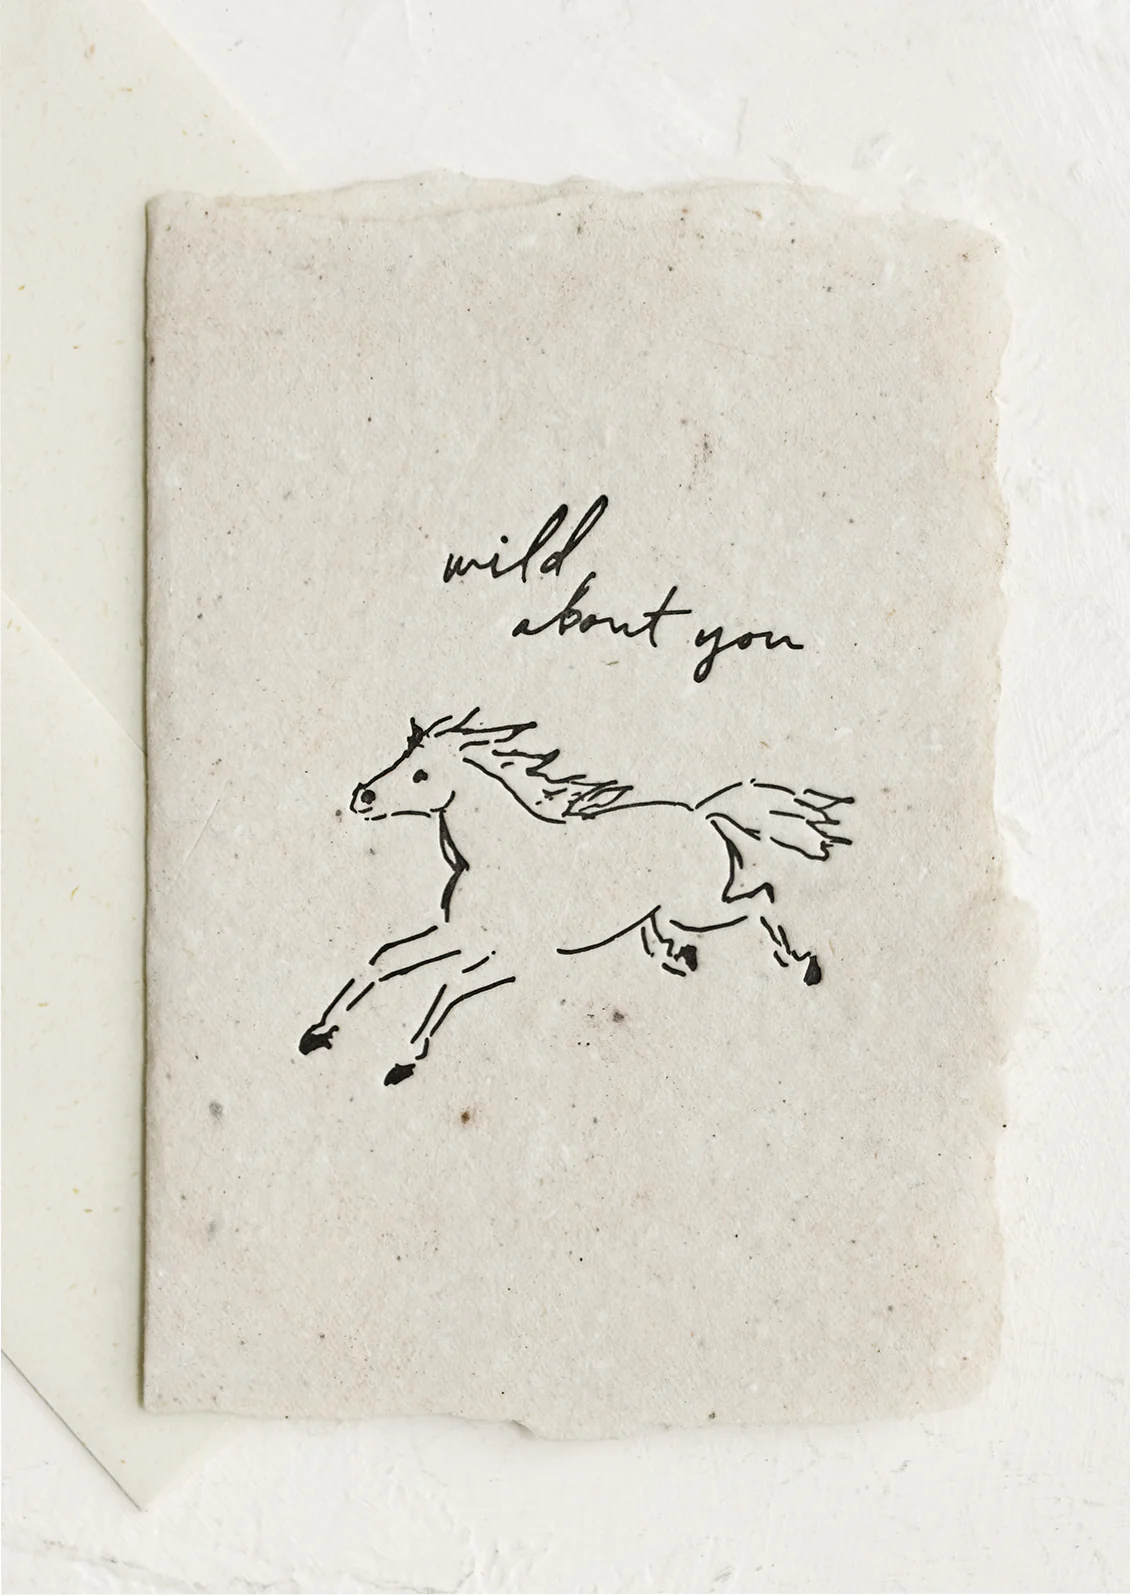 wild
about you